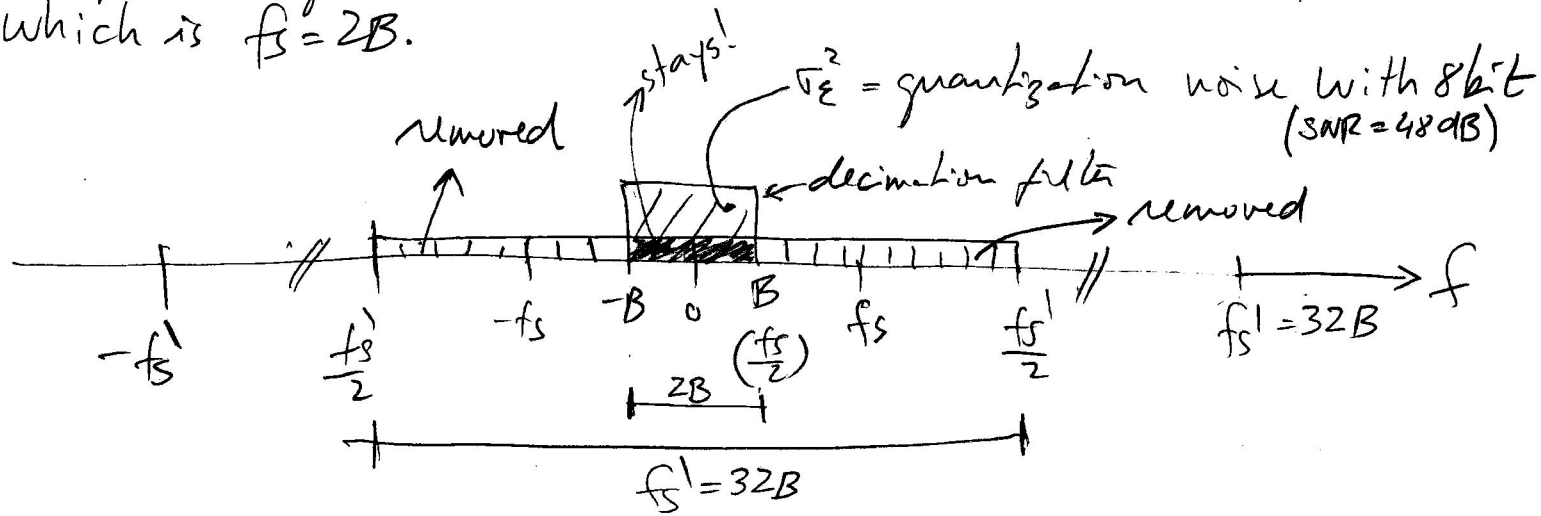 which is fs' = 2B.
stays!
σε² = quantization noise with 8bit
(SNR = 48dB)
removed
decimation filter
removed
-fs'
fs'/2
-fs
-B
0
B
(fs/2)
fs
fs'/2
fs' = 32B
f
2B
fs' = 32B